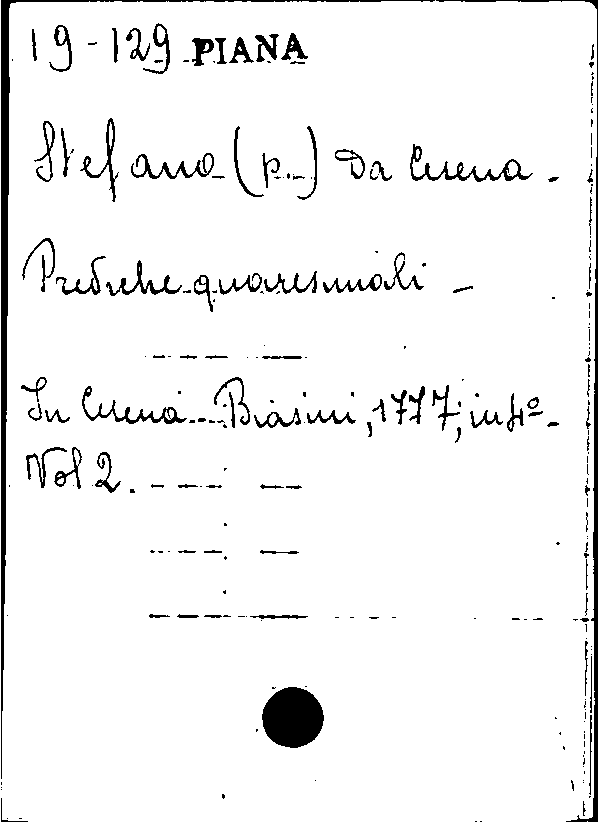 19-129 PIANA
Stefano (p.) Da Cesena -
Prediche quaresimali -
In Cesena - Biasini, 1777; in 4º -
Vol 2.